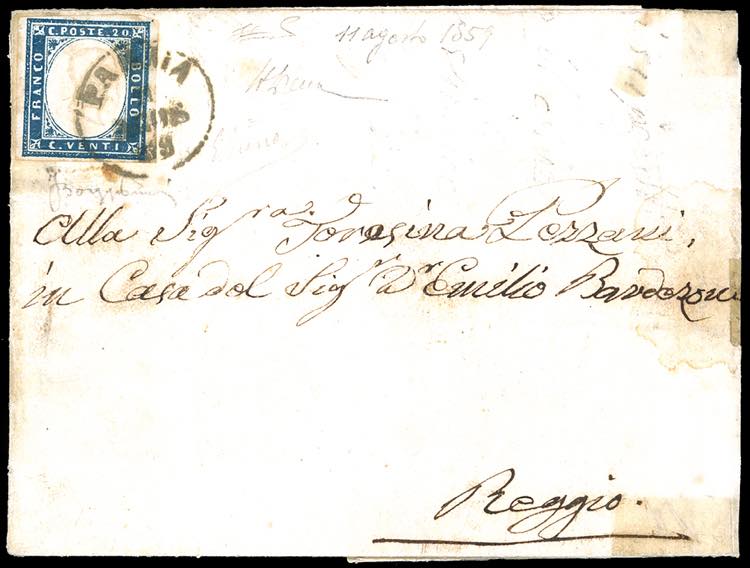 C. POSTE. 20
FRANCO
BOLLO
C. VENTI
PARMA
11 agosto 1859
Alla Sig.ra Teresina Pezzani,
in Casa del Sig.r D.r Emilio
Reggio.